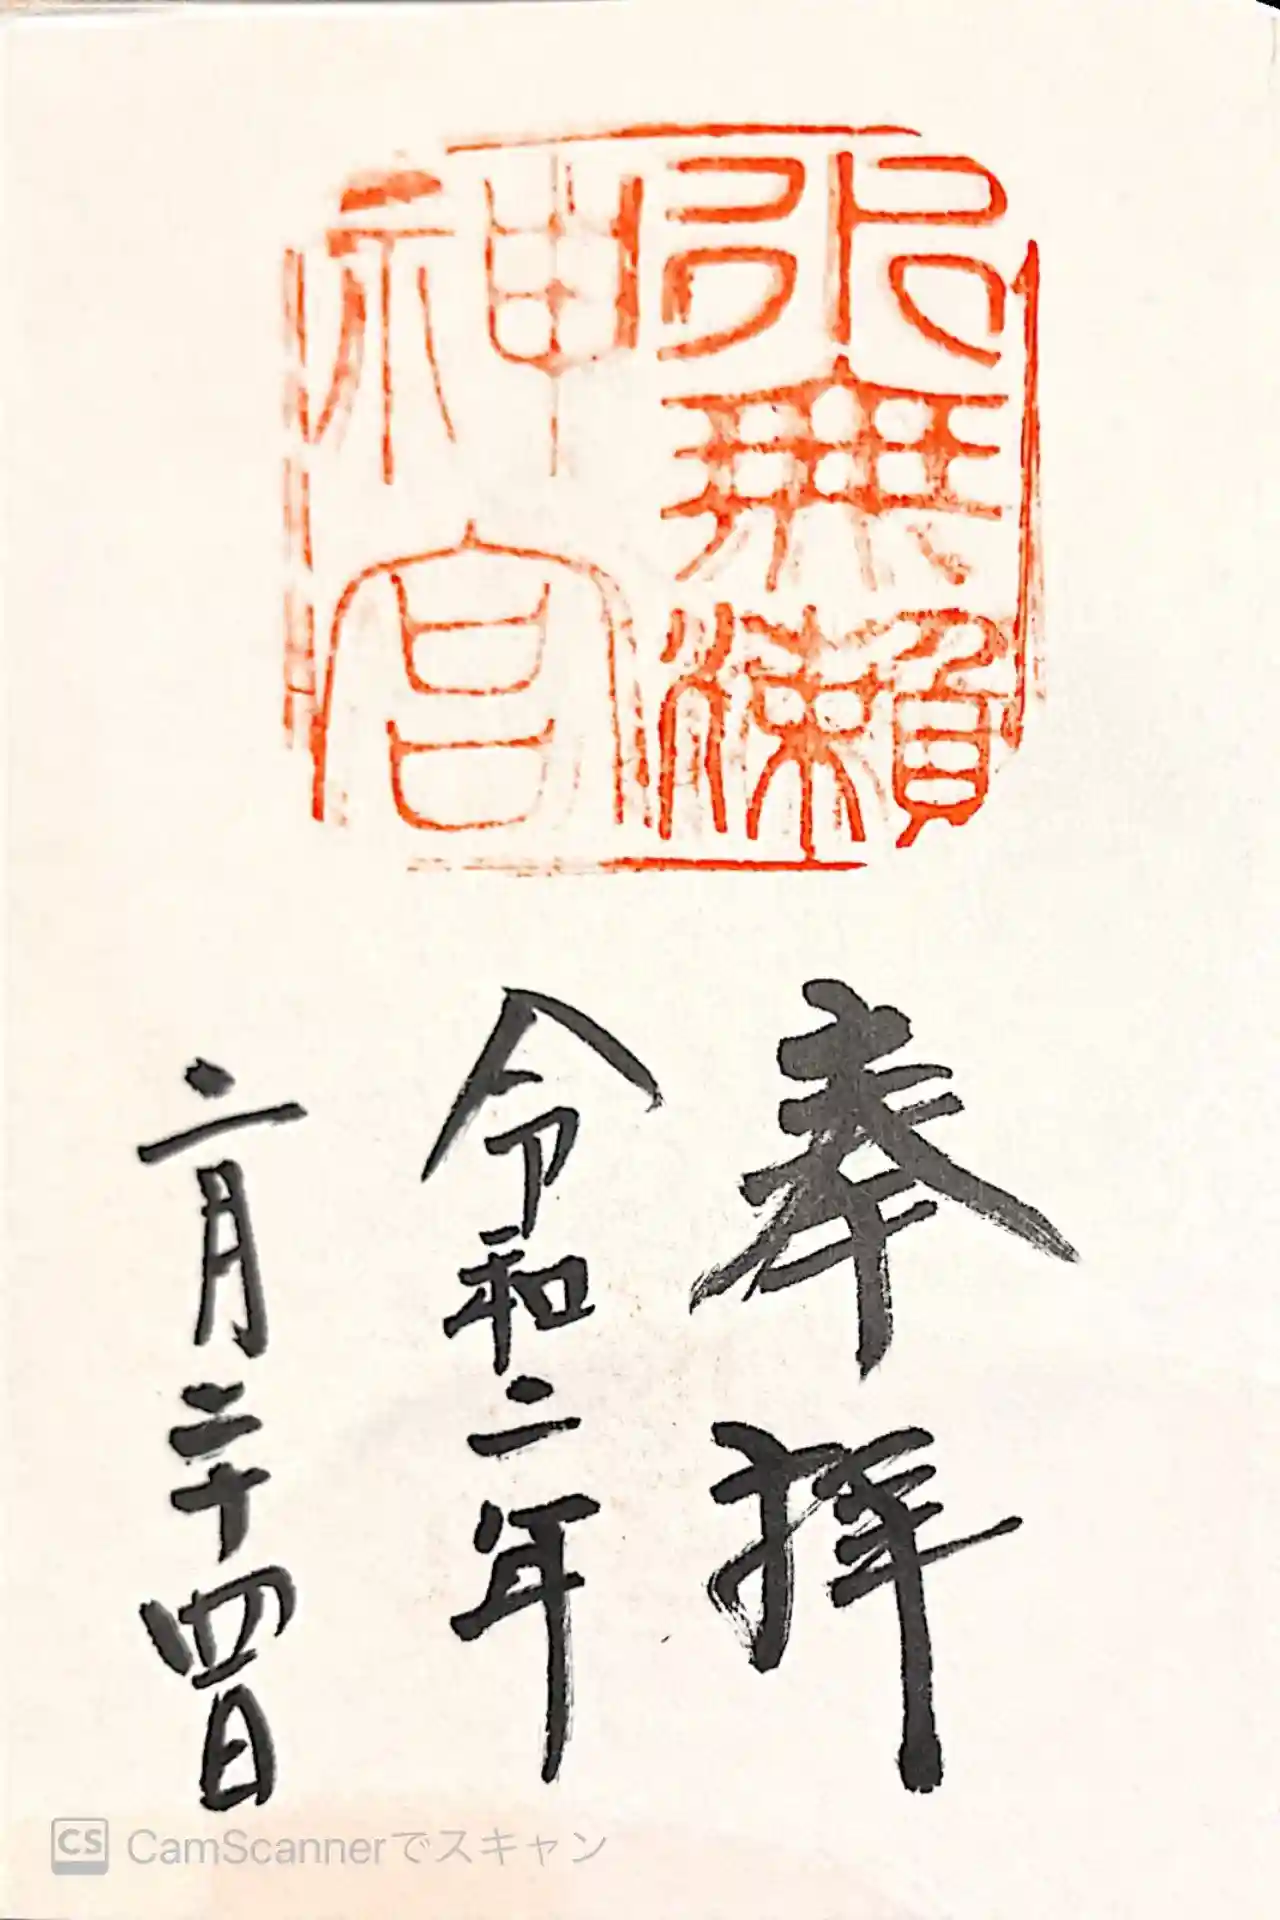 水無瀬
神宮
奉拝
令和二年
二月二十四日
CS CamScannerでスキャン